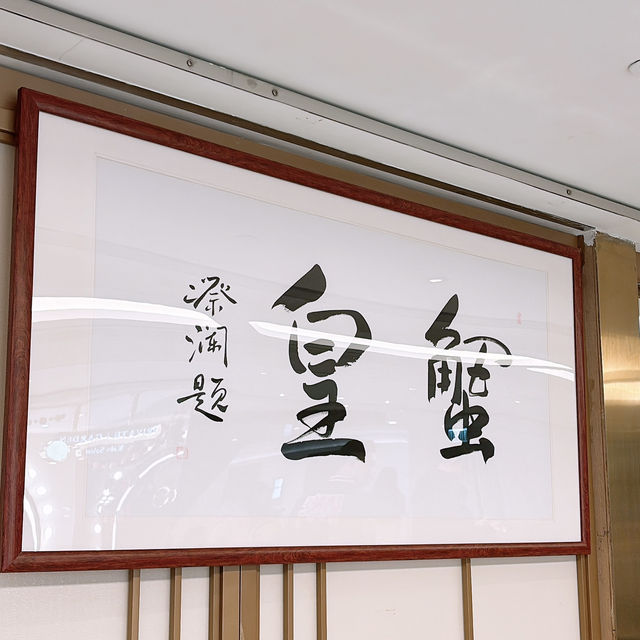 蟹皇
蔡澜题